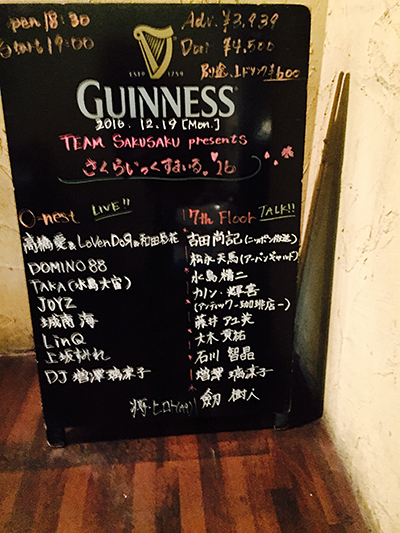 open 18:30
Start 19:00
Adv. ¥3,939
Door ¥4,500
別途 1ドリンク ¥600
ESTD 1759
GUINNESS
2016. 12.19 [Mon.]
TEAM SAKUSAKU presents
さくらいっくすまいる。16
O-nest LIVE!!
高橋愛&LoVendoЯ&和田彩花
DOMINO88
TAKA(水島大宙)
JOYZ
城南 海
LinQ
上坂すみれ
DJ 増澤 璃凜子
7th Floor TALK!!
吉田尚記(ニッポン放送)
松永天馬(アーバンギャルド)
水島 精二
カノン・輝喜
(アンティック-珈琲店-)
藤井 アユ美
大木 貢祐
石川 智晶
増澤 璃凜子
劔 樹人